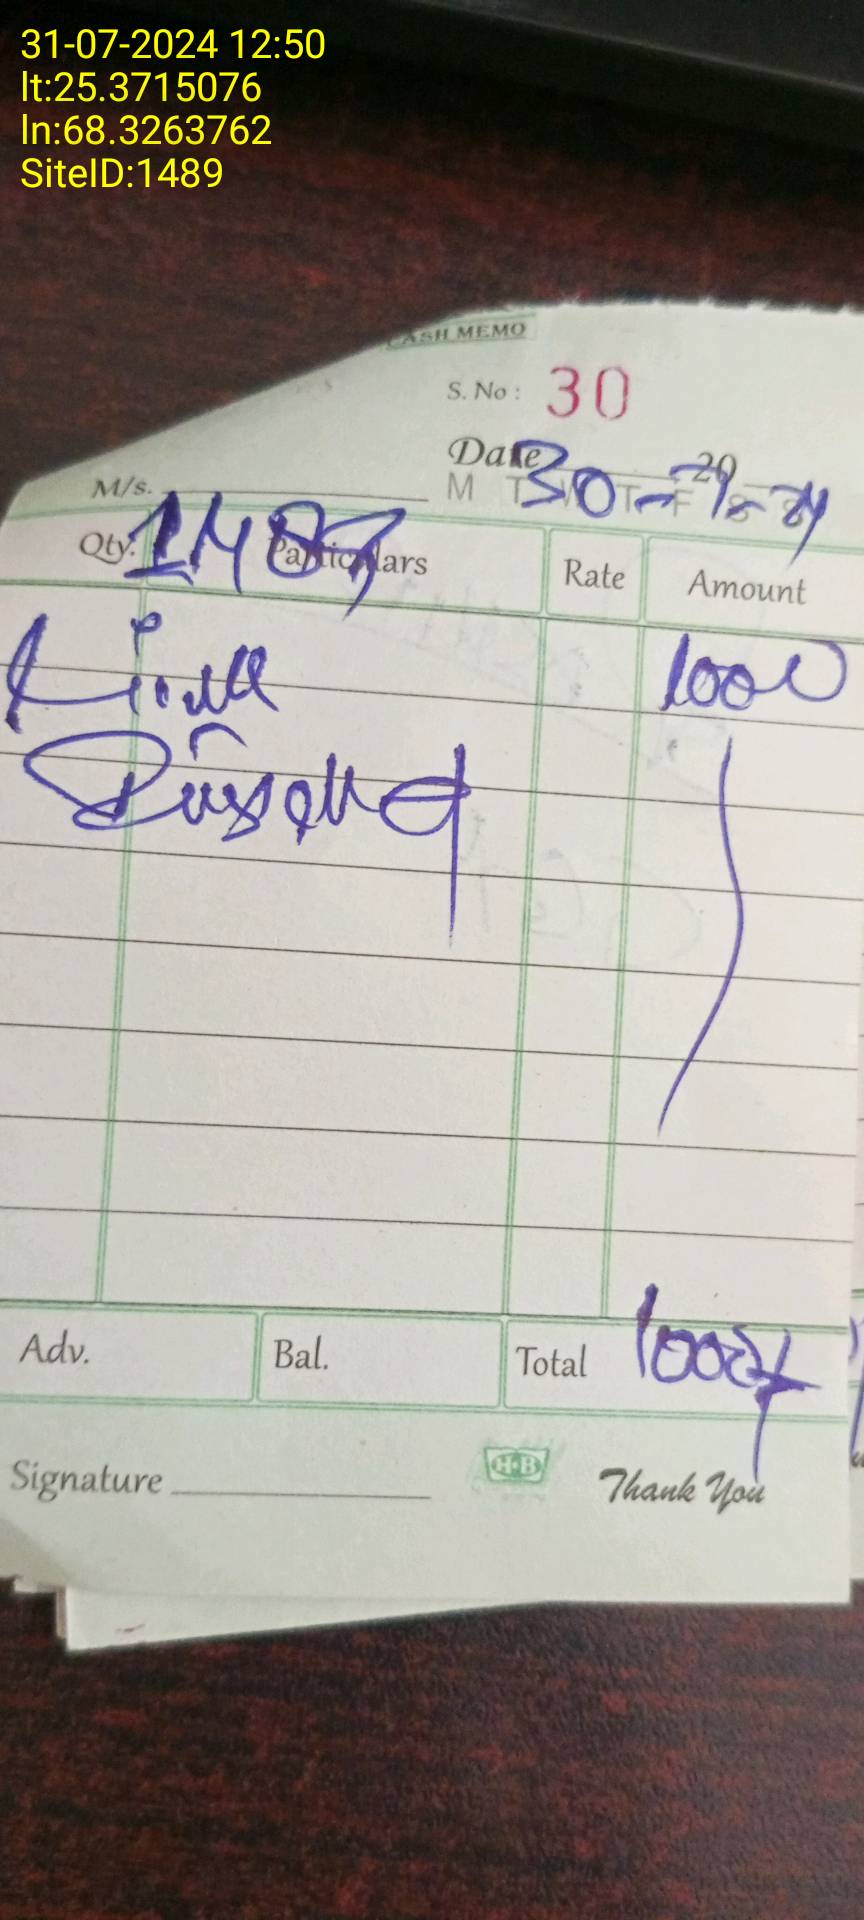 31-07-2024 12:50
lt:25.3715076
ln:68.3263762
SiteID:1489
CASH MEMO
S. No : 30
Date 20
M/s. M T W T F S S
30-7-24
Qty. Particulars Rate Amount
1487
1000
Adv. Bal. Total 1000/
Signature H·B Thank You